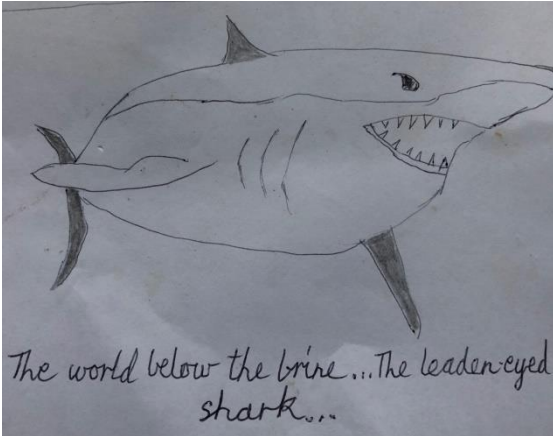 The world below the brine...The leaden-eyed
shark...